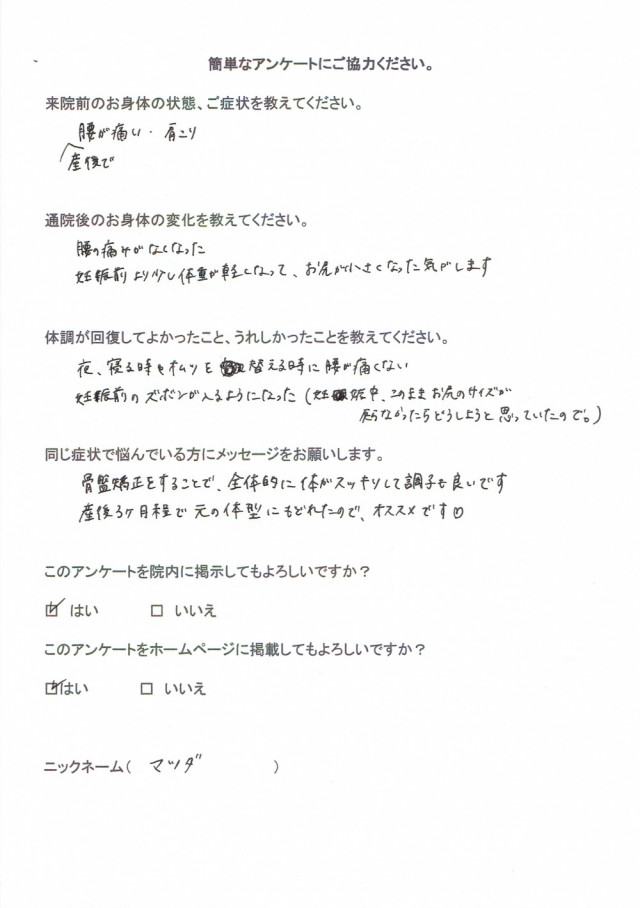 簡単なアンケートにご協力ください。
来院前のお身体の状態、ご症状を教えてください。
腰が痛い・肩こり
産後で
通院後のお身体の変化を教えてください。
腰の痛みがなくなった
妊娠前より少し体重が軽くなって、お尻が小さくなった気がします
体調が回復してよかったこと、うれしかったことを教えてください。
夜、寝る時もオムツを替える時に腰が痛くない
妊娠前のズボンが入るようになった(妊娠中、このままお尻のサイズが
戻らなかったらどうしようと思っていたので。)
同じ症状で悩んでいる方にメッセージをお願いします。
骨盤矯正をすることで、全体的に体がスッキリして調子も良いです
産後3ヶ月程で元の体型にもどれたので、オススメです♡
このアンケートを院内に掲示してもよろしいですか？
☑ はい □ いいえ
このアンケートをホームページに掲載してもよろしいですか？
☑ はい □ いいえ
ニックネーム( マツダ )